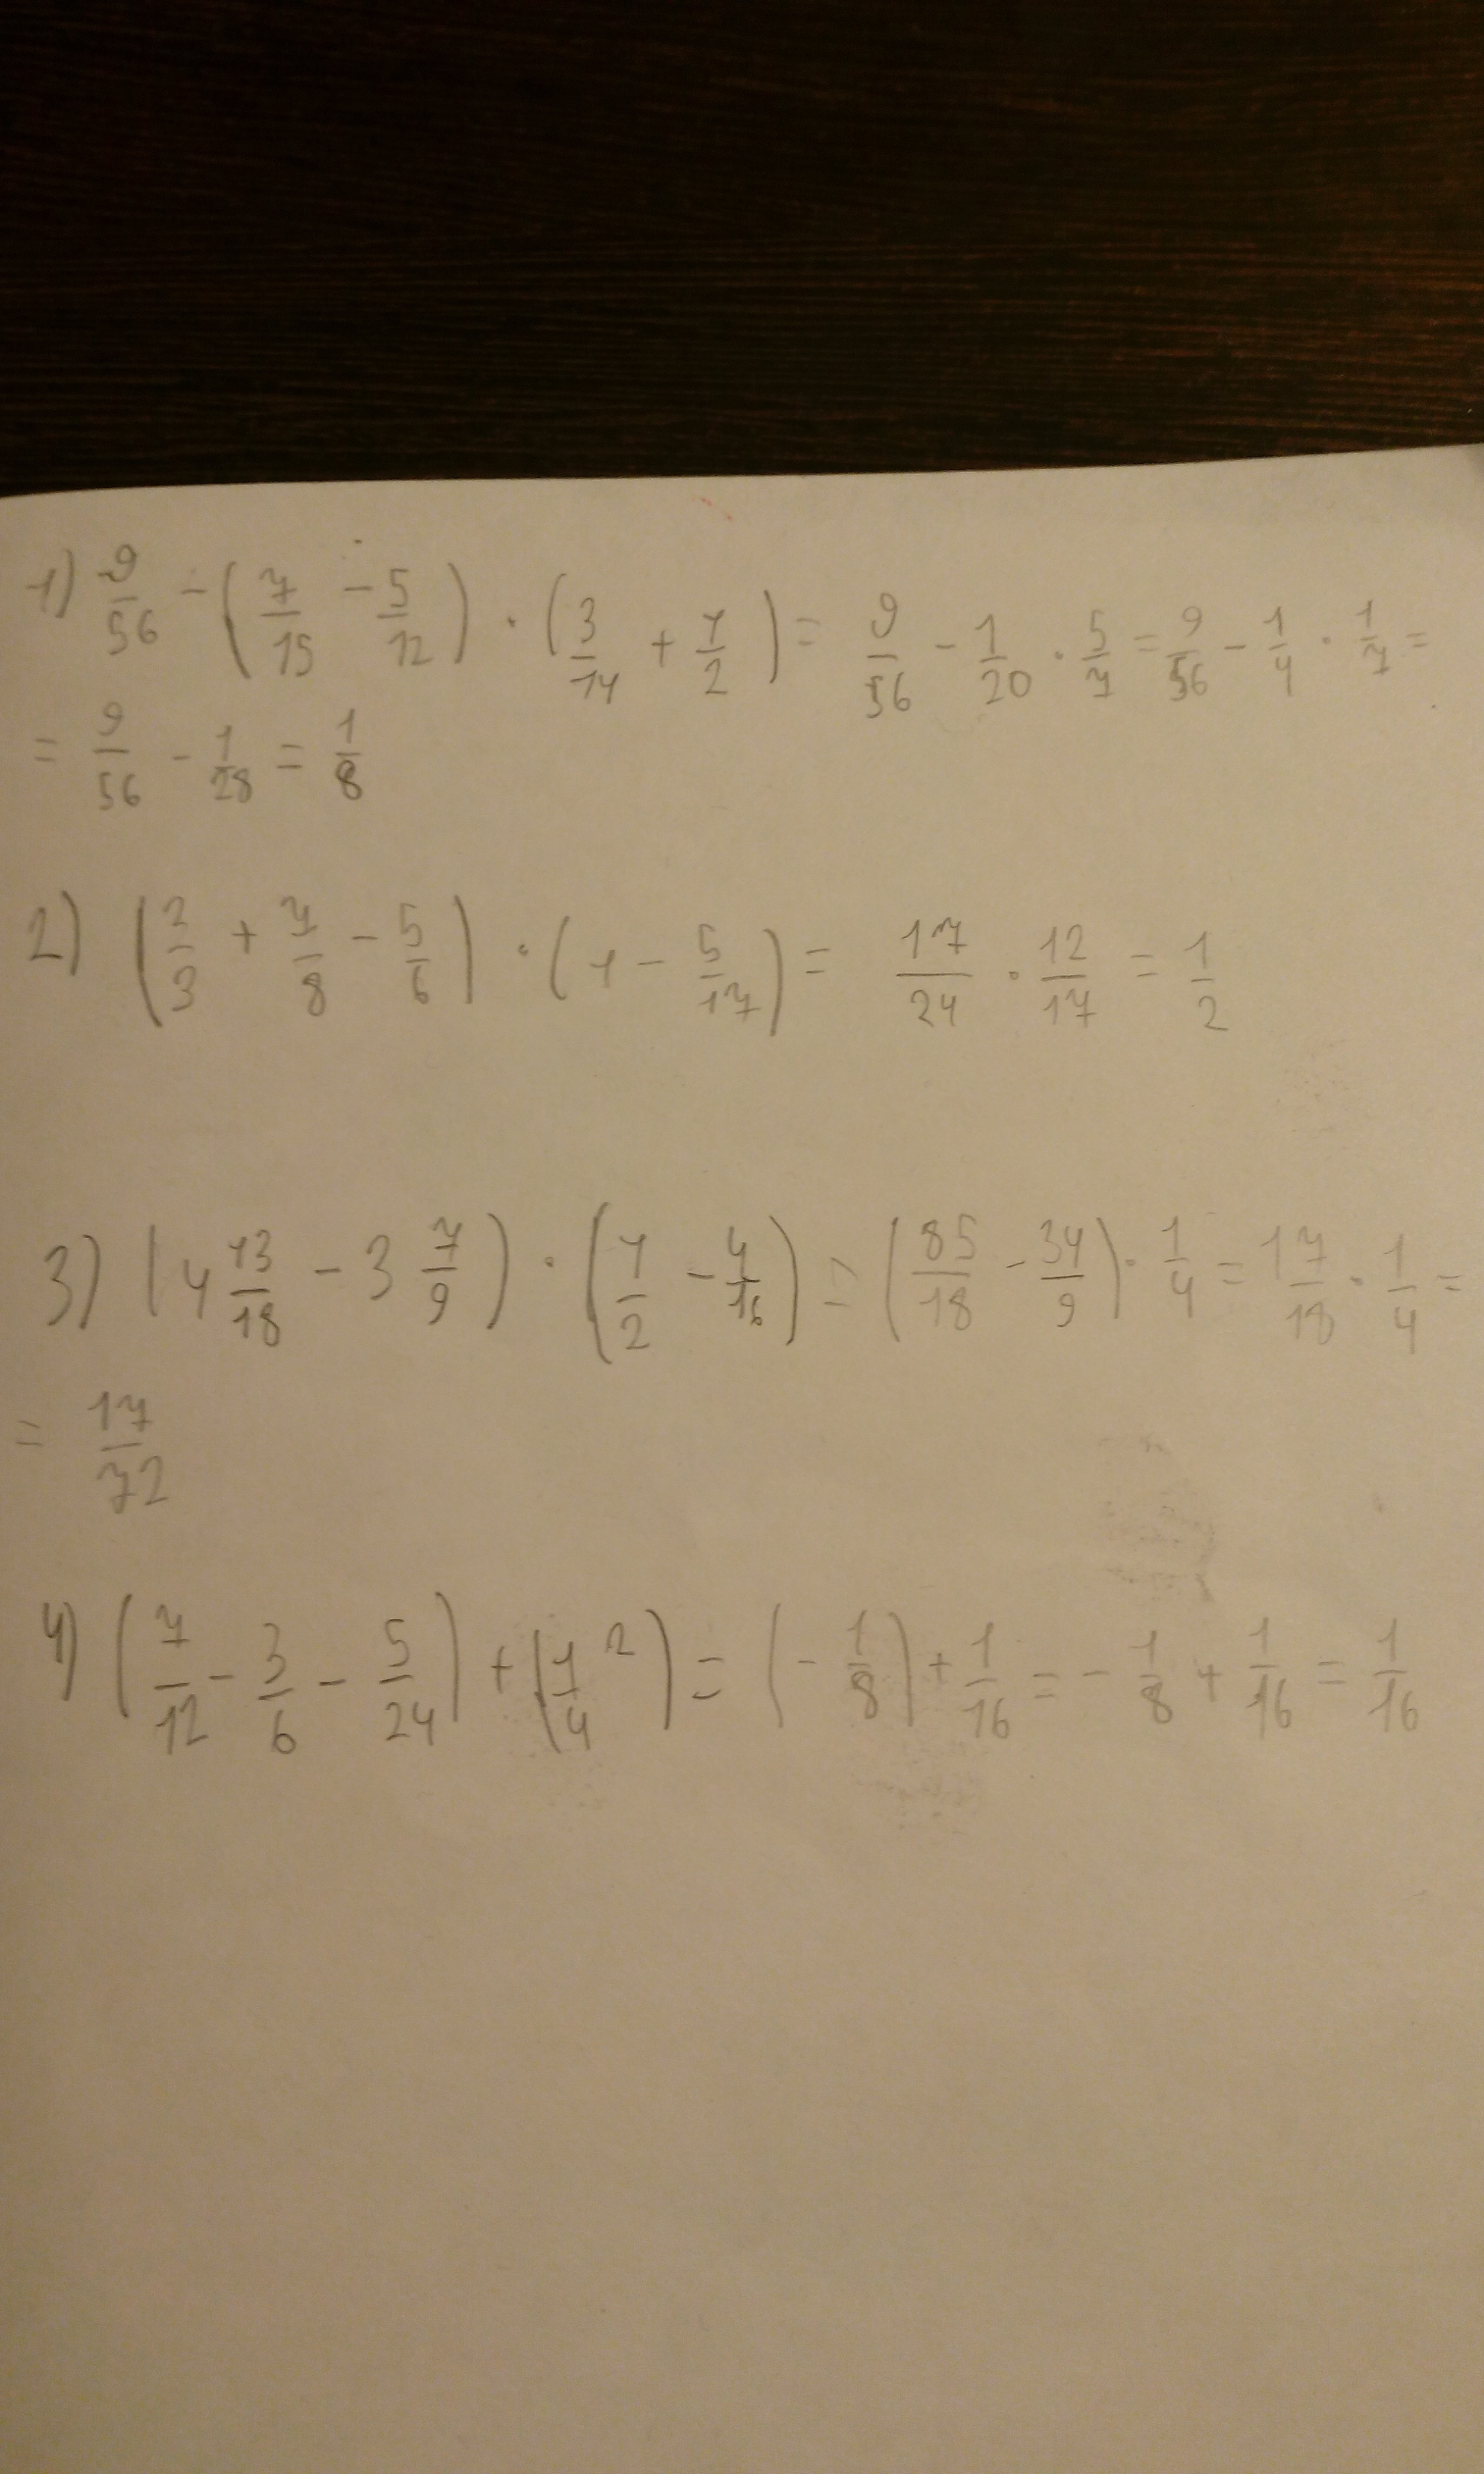 1) 9/56 - (7/15 - 5/12) · (3/14 + 1/2) = 9/56 - 1/20 · 5/7 = 9/56 - 1/4 · 1/7 =
= 9/56 - 1/28 = 1/8
2) (2/3 + 7/8 - 5/6) · (1 - 5/17) = 17/24 · 12/17 = 1/2
3) (4 13/18 - 3 7/9) · (1/2 - 4/16) = (85/18 - 34/9) · 1/4 = 17/18 · 1/4 =
= 17/72
4) (7/12 - 3/6 - 5/24) + (1/4 ²) = (- 1/8) + 1/16 = - 1/8 + 1/16 = 1/16